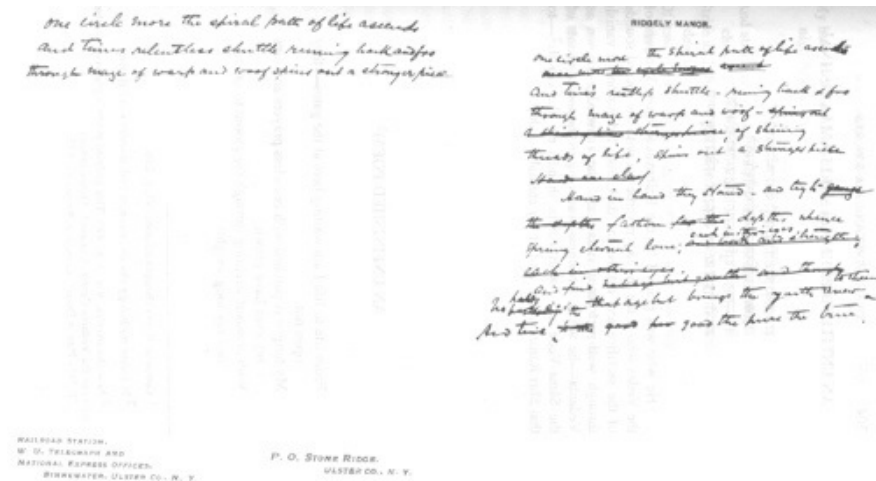 one circle more the spiral path of life ascends
and times relentless shuttle running back and fro
through maze of warp and woof spins out a stronger piece
RAILROAD STATION,
W. U. TELEGRAPH AND
NATIONAL EXPRESS OFFICES,
BINNEWATER, ULSTER CO., N. Y.
P. O. STONE RIDGE,
ULSTER CO., N. Y.
RIDGELY MANOR.
one circle more the spiral path of life ascends
And time's restless shuttle - running back & fro
through maze of warp and woof - spins out
of shining
threads of life, spins out a stronger piece
Hand in hand they stand - and try
the depths fathom depths whence
spring eternal love, each in others eyes
And find
that age but brings the youth anew
And time good the pure the true.